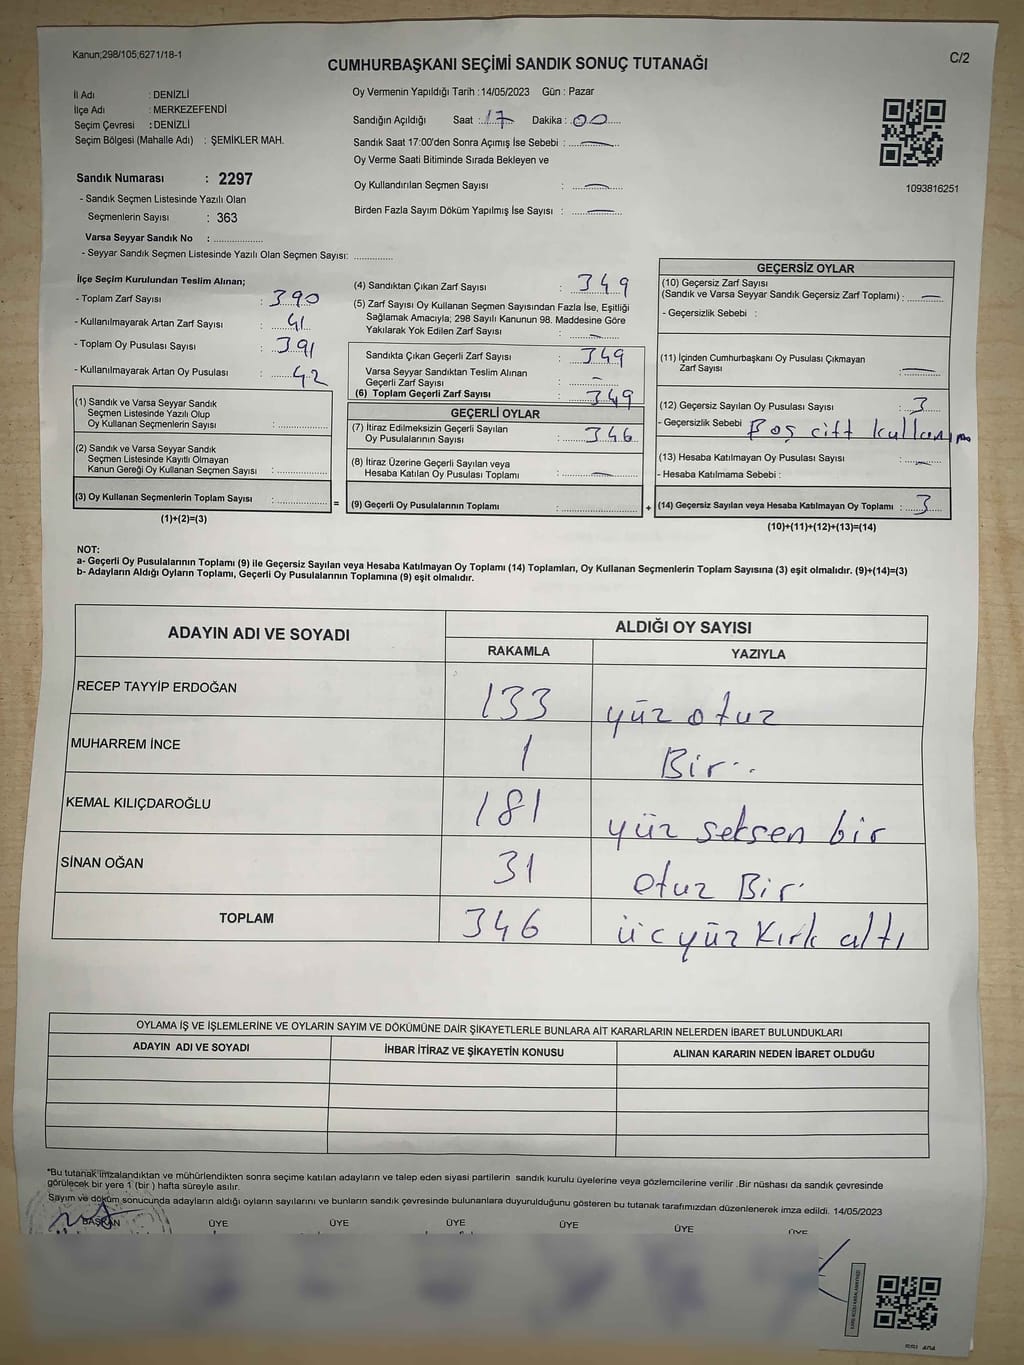 Kanun;298/105;6271/18-1
C/2
CUMHURBAŞKANI SEÇİMİ SANDIK SONUÇ TUTANAĞI
İl Adı : DENİZLİ
İlçe Adı : MERKEZEFENDİ
Seçim Çevresi : DENİZLİ
Seçim Bölgesi (Mahalle Adı) : ŞEMİKLER MAH.
Sandık Numarası : 2297
- Sandık Seçmen Listesinde Yazılı Olan
Seçmenlerin Sayısı : 363
Varsa Seyyar Sandık No : ..................
- Seyyar Sandık Seçmen Listesinde Yazılı Olan Seçmen Sayısı: ..............
Oy Vermenin Yapıldığı Tarih : 14/05/2023 Gün : Pazar
Sandığın Açıldığı Saat : 17 Dakika : 00
Sandık Saat 17:00'den Sonra Açımış İse Sebebi : —
Oy Verme Saati Bitiminde Sırada Bekleyen ve
Oy Kullandırılan Seçmen Sayısı : —
Birden Fazla Sayım Döküm Yapılmış İse Sayısı : —
1093816251
İlçe Seçim Kurulundan Teslim Alınan;
- Toplam Zarf Sayısı : 390
- Kullanılmayarak Artan Zarf Sayısı : 41
- Toplam Oy Pusulası Sayısı : 391
- Kullanılmayarak Artan Oy Pusulası : 42
(1) Sandık ve Varsa Seyyar Sandık
Seçmen Listesinde Yazılı Olup
Oy Kullanan Seçmenlerin Sayısı : ..............
(2) Sandık ve Varsa Seyyar Sandık
Seçmen Listesinde Kayıtlı Olmayan
Kanun Gereği Oy Kullanan Seçmen Sayısı : ..............
(3) Oy Kullanan Seçmenlerin Toplam Sayısı : .............. =
(1)+(2)=(3)
(4) Sandıktan Çıkan Zarf Sayısı : 349
(5) Zarf Sayısı Oy Kullanan Seçmen Sayısından Fazla İse, Eşitliği
Sağlamak Amacıyla; 298 Sayılı Kanunun 98. Maddesine Göre
Yakılarak Yok Edilen Zarf Sayısı : —
Sandıkta Çıkan Geçerli Zarf Sayısı : 349
Varsa Seyyar Sandıktan Teslim Alınan
Geçerli Zarf Sayısı : —
(6) Toplam Geçerli Zarf Sayısı : 349
GEÇERLİ OYLAR
(7) İtiraz Edilmeksizin Geçerli Sayılan
Oy Pusulalarının Sayısı : 346
(8) İtiraz Üzerine Geçerli Sayılan veya
Hesaba Katılan Oy Pusulası Toplamı : —
(9) Geçerli Oy Pusulalarının Toplamı : .............. +
GEÇERSİZ OYLAR
(10) Geçersiz Zarf Sayısı
(Sandık ve Varsa Seyyar Sandık Geçersiz Zarf Toplamı) : —
- Geçersizlik Sebebi :
(11) İçinden Cumhurbaşkanı Oy Pusulası Çıkmayan
Zarf Sayısı : —
(12) Geçersiz Sayılan Oy Pusulası Sayısı : 3
- Geçersizlik Sebebi Boş çift
(13) Hesaba Katılmayan Oy Pusulası Sayısı : —
- Hesaba Katılmama Sebebi :
(14) Geçersiz Sayılan veya Hesaba Katılmayan Oy Toplamı : 3
(10)+(11)+(12)+(13)=(14)
NOT:
a- Geçerli Oy Pusulalarının Toplamı (9) ile Geçersiz Sayılan veya Hesaba Katılmayan Oy Toplamı (14) Toplamları, Oy Kullanan Seçmenlerin Toplam Sayısına (3) eşit olmalıdır. (9)+(14)=(3)
b- Adayların Aldığı Oyların Toplamı, Geçerli Oy Pusulalarının Toplamına (9) eşit olmalıdır.
ADAYIN ADI VE SOYADI ALDIĞI OY SAYISI
RAKAMLA YAZIYLA
RECEP TAYYİP ERDOĞAN 133 yüz otuz
MUHARREM İNCE 1 Bir
KEMAL KILIÇDAROĞLU 181 yüz seksen bir
SİNAN OĞAN 31 otuz Bir
TOPLAM 346 üc yüz Kırk altı
OYLAMA İŞ VE İŞLEMLERİNE VE OYLARIN SAYIM VE DÖKÜMÜNE DAİR ŞİKAYETLERLE BUNLARA AİT KARARLARIN NELERDEN İBARET BULUNDUKLARI
ADAYIN ADI VE SOYADI İHBAR İTİRAZ VE ŞİKAYETİN KONUSU ALINAN KARARIN NEDEN İBARET OLDUĞU
*Bu tutanak imzalandıktan ve mühürlendikten sonra seçime katılan adayların ve talep eden siyasi partilerin sandık kurulu üyelerine veya gözlemcilerine verilir .Bir nüshası da sandık çevresinde
görülecek bir yere 1 (bir ) hafta süreyle asılır.
Sayım ve döküm sonucunda adayların aldığı oyların sayılarını ve bunların sandık çevresinde bulunanlara duyurulduğunu gösteren bu tutanak tarafımızdan düzenlenerek imza edildi. 14/05/2023
BAŞKAN ÜYE ÜYE ÜYE ÜYE ÜYE ÜYE